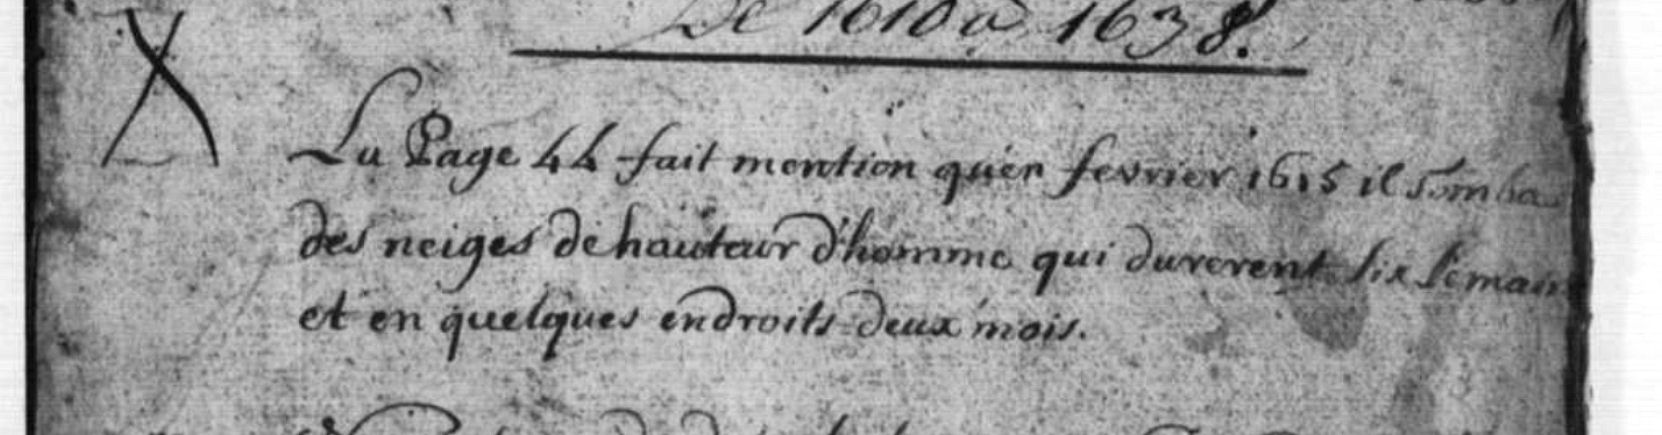 De 1610 a 1638.
La Page 44 fait mention qu'en fevrier 1615 il tomba
des neiges de hauteur d'homme qui durerent six semain
et en quelques endroits deux mois.